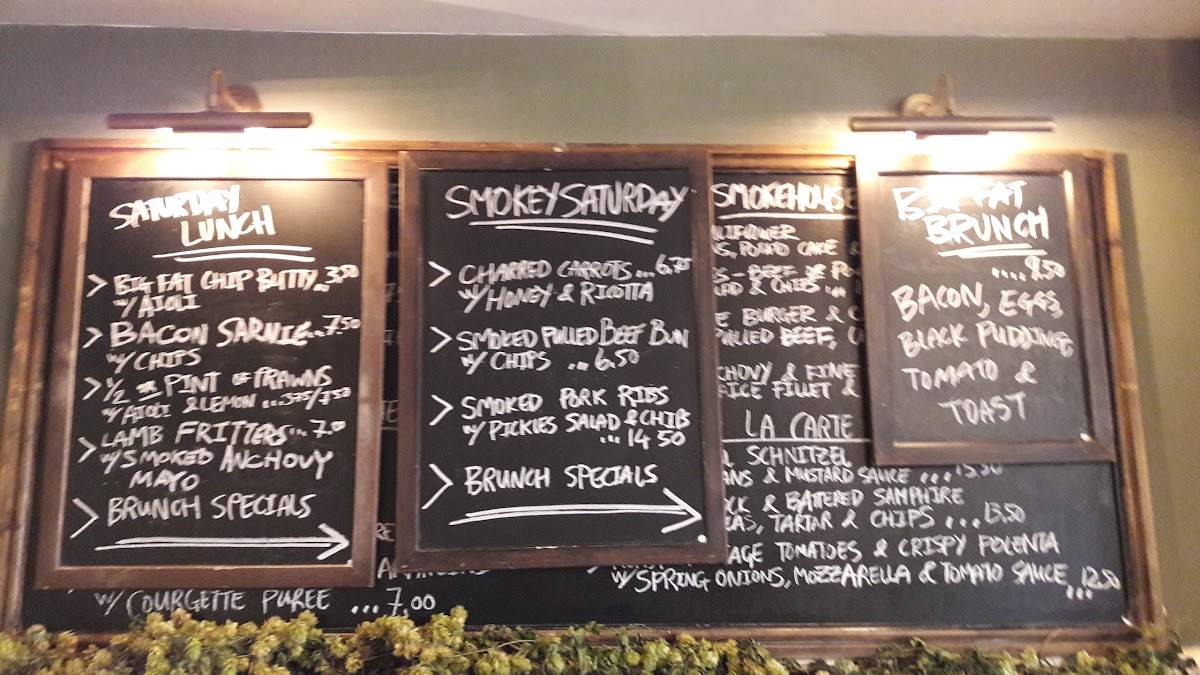 SATURDAY
LUNCH
> BIG FAT CHIP BUTTY... 3,50
W/ AIOLI
> BACON SARNIE... 7.50
W/ CHIPS
> 1/2 OR PINT OF PRAWNS
W/ AIOLI & LEMON ... 3.75/7.50
> LAMB FRITTERS... 7.00
W/ SMOKED ANCHOVY
MAYO
> BRUNCH SPECIALS
W/ COURGETTE PUREE ... 7.00
SMOKEY SATURDAY
> CHARRED CARROTS... 6.75
W/ HONEY & RICOTTA
> SMOKED PULLED BEEF BUN
W/ CHIPS ... 6.50
> SMOKED PORK RIBS
W/ PICKLES SALAD & CHIPS
... 14 50
> BRUNCH SPECIALS
SMOKEHOUSE
POTATO CAKE &
BEEF OR
& CHIPS
BURGER &
BEEF,
& FINE
FILLET &
LA CARTE
SCHNITZEL
& MUSTARD SAUCE ... 15.50
& BATTERED SAMPHIRE
TARTAR & CHIPS ... 13.50
TOMATOES & CRISPY POLENTA
W/ SPRING ONIONS, MOZZARELLA & TOMATO SAUCE
... 12.50
BIG FAT
BRUNCH
.... 9.50
BACON, EGGS,
BLACK PUDDING,
TOMATO &
TOAST